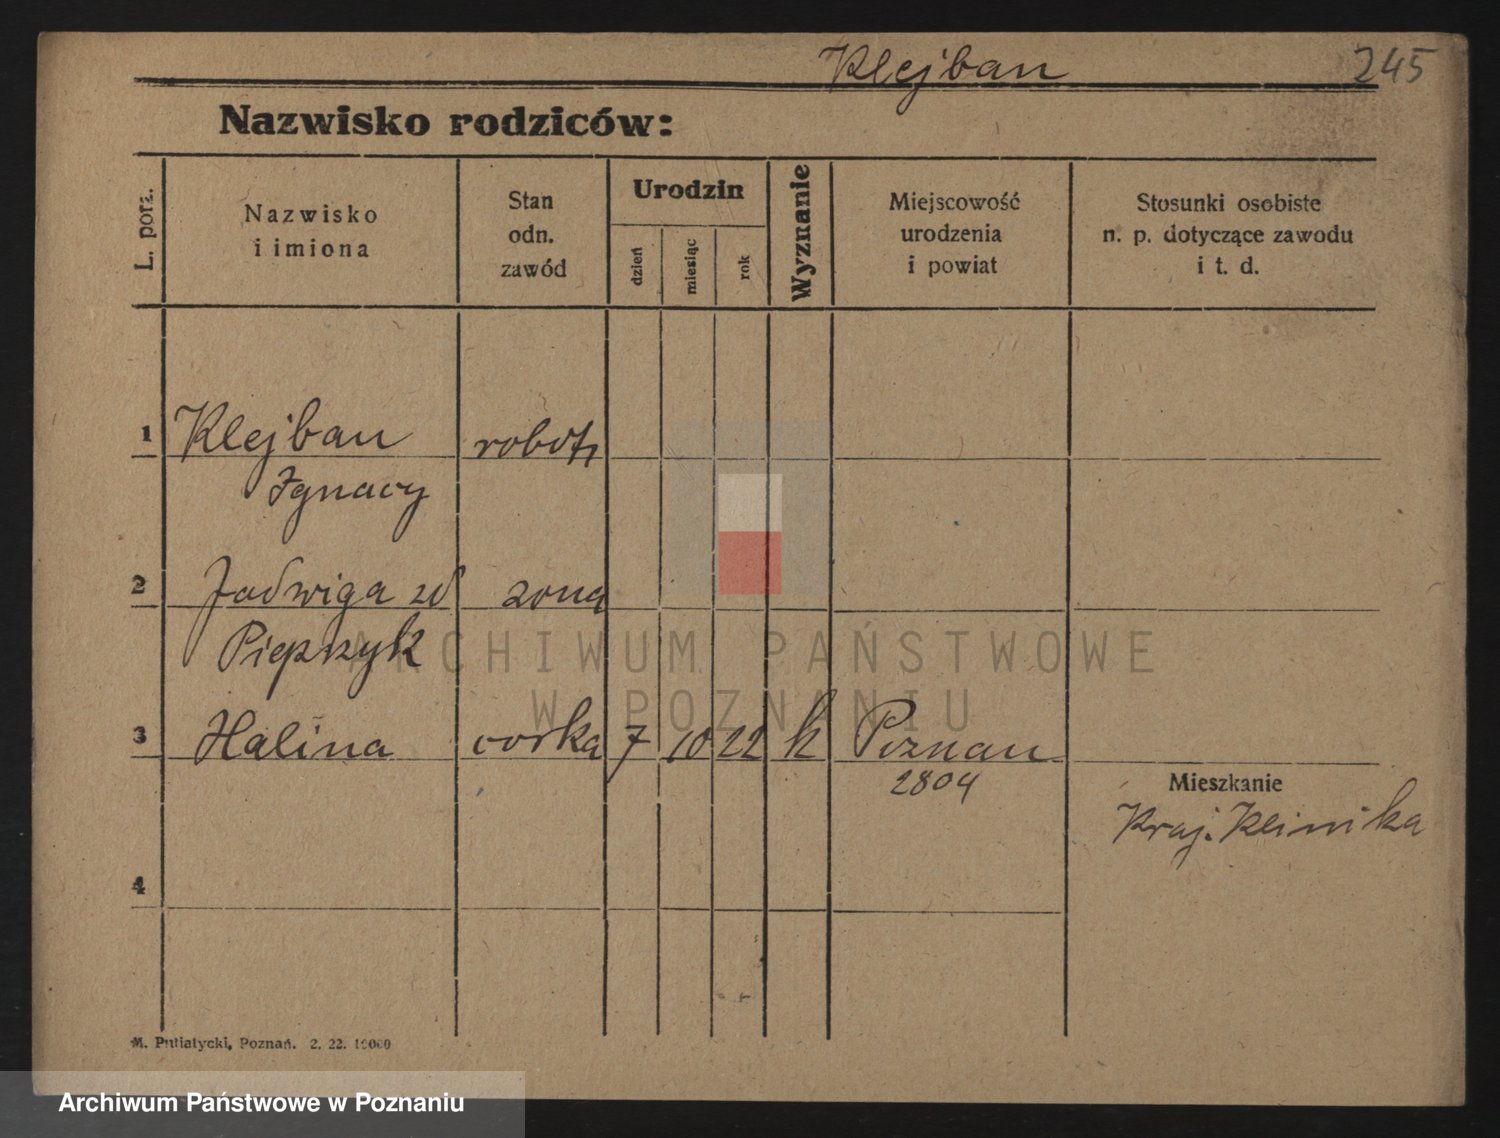 Klejban 245
Nazwisko rodziców:
L. porz.
Nazwisko
i imiona
Stan
odn.
zawód
Urodzin
dzień
miesiąc
rok
Wyznanie
Miejscowość
urodzenia
i powiat
Stosunki osobiste
n. p. dotyczące zawodu
i t. d.
1 Klejban robotn
Ignacy
2 Jadwiga zd zona
Pieprzyk
ARCHIWUM PAŃSTWOWE
W POZNANIU
3 Halina corka 7 10 22 k Poznan
2804
Mieszkanie
Kraj. Klinika
4
M. Putiatycki, Poznań. 2. 22. 10000
Archiwum Państwowe w Poznaniu